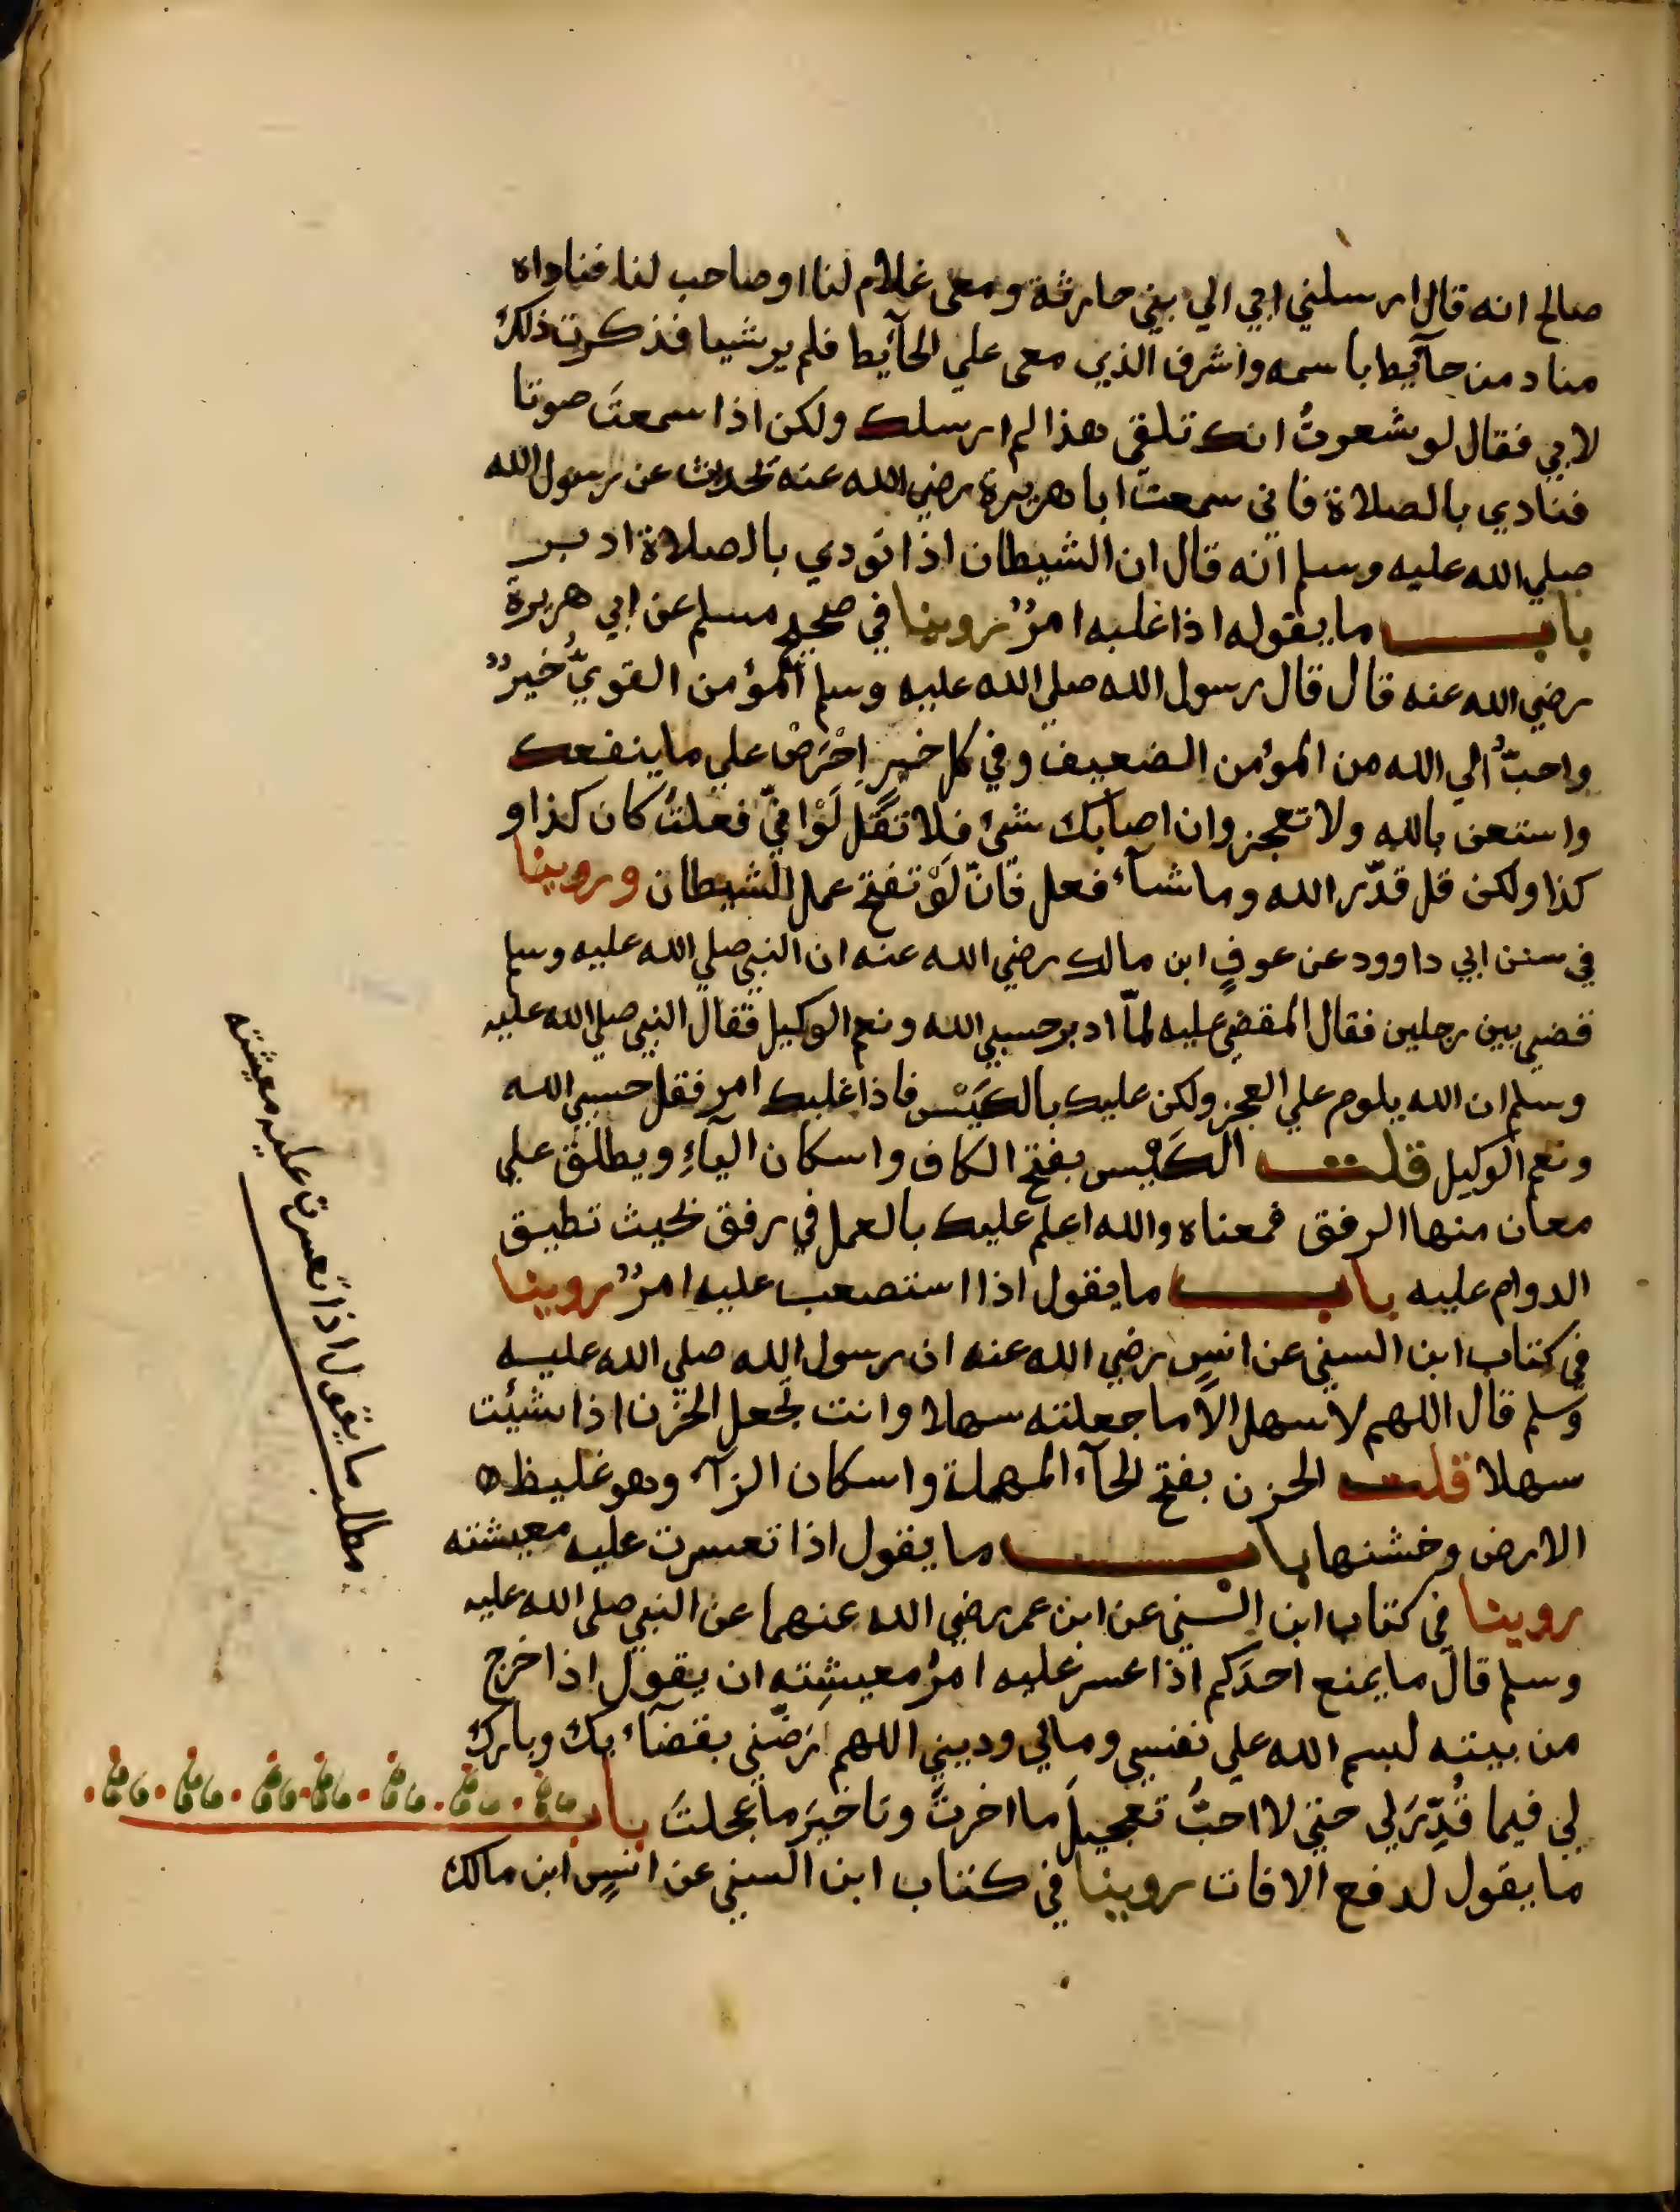 صالح انه قال ارسلني ابي الي بني حارثة ومعي غلام لنا او صاحب لنا فناداه
مناد من حآئيط باسمه واشرف الذي معي علي الحآئيط فلم ير شيا فذكرت ذلك
لابي فقال لو شعرتُ انك تلقي هذا لم ارسلك ولكن اذا سمعتَ صوتا
فنادي بالصلاة فاني سمعت ابا هريرة رضي الله عنه يحدث عن رسول الله
صلي الله عليه وسلم انه قال ان الشيطان اذا نودي بالصلاة ادبر
باب ما يقوله اذا غلبه امرٌ روينا في صحيح مسلم عن ابي هريرة
رضي الله عنه قال قال رسول الله صلي الله عليه وسلم المؤمن القويُّ خيرٌ
واحبُّ الي الله من المؤمن الضعيف وفي كل خير اِحْرَصْ علي ما ينفعك
واستعن بالله ولا تعجز وان اصابك شئ فلا تقل لَوْ انيّ فعلتُ كان كذا و
كذا ولكن قل قدّر الله وما شآء فعل فانّ لَوْ تفتح عمل الشيطان وروينا
في سنن ابي داوود عن عوفٍ ابن مالك رضي الله عنه ان النبي صلي الله عليه وسلم
قضي بين رجلين فقال المقضي عليه لمّا ادبر حسبي الله ونعم الوكيل فقال النبي صلي الله عليه
وسلم ان الله يلوم علي العجز ولكن عليك بالكَيْس فاذا غلبك امر فقل حسبي الله
ونعم الوكيل قلت الكَيْس بفتح الكاف واسكان اليآءِ ويطلق علي
معان منها الرفق فمعناه والله اعلم عليك بالعمل في رفق بحيث تطيق
الدوام عليه باب ما يقول اذا استصعب عليه امرٌ روينا
في كتاب ابن السني عن انسٍ رضي الله عنه ان رسول الله صلي الله عليه
وسلم قال اللهم لا سهل الا ما جعلته سهلا وانت تجعل الحزن اذا شئت
سهلا قلت الحزن بفتح الحآء المهملة واسكان الزآء وهو غليظ
الارض وخشنها باب ما يقول اذا تعسرت عليه معيشته
روينا في كتاب ابن السني عن ابن عمر رضي الله عنهما عن النبي صلي الله عليه
وسلم قال ما يمنع احدَكم اذا عسر عليه امرُ معيشتِه ان يقول اذا خرج
من بيته بسم الله علي نفسي ومالي وديني اللهم رَضّني بقضآئك وبارك
لي فيما قُدِّرَ لي حتي لا احبُّ تعجيلَ ما اخرتَ وتاخيرَ ما عجلتَ باب
ما يقول لدفع الافات روينا في كتاب ابن السني عن انسٍ ابن مالك
مطلب ما يقول اذا تعسرت عليه معيشته